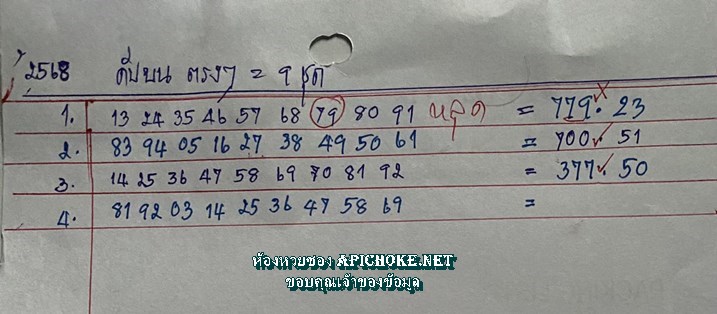 ปี 2568 ดับบน ตรงๆ = 9 ชุด
1. 13 24 35 46 57 68 79 80 91 หลุด = 779. 23
2. 83 94 05 16 27 38 49 50 61 = 700. 51
3. 14 25 36 47 58 69 70 81 92 = 377. 50
4. 81 92 03 14 25 36 47 58 69 =
ห้องหวยซอง APICHOKE.NET
ขอบคุณเจ้าของข้อมูล